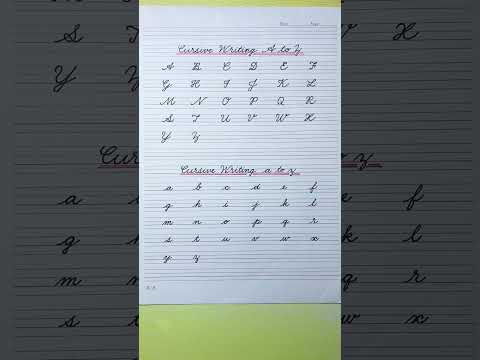 Cursive Writing A to Z
A B C D E F
G H I J K L
M N O P Q R
S T U V W X
Y Z
Cursive Writing a to z
a b c d e f
g h i j k l
m n o p q r
s t u v w x
y z